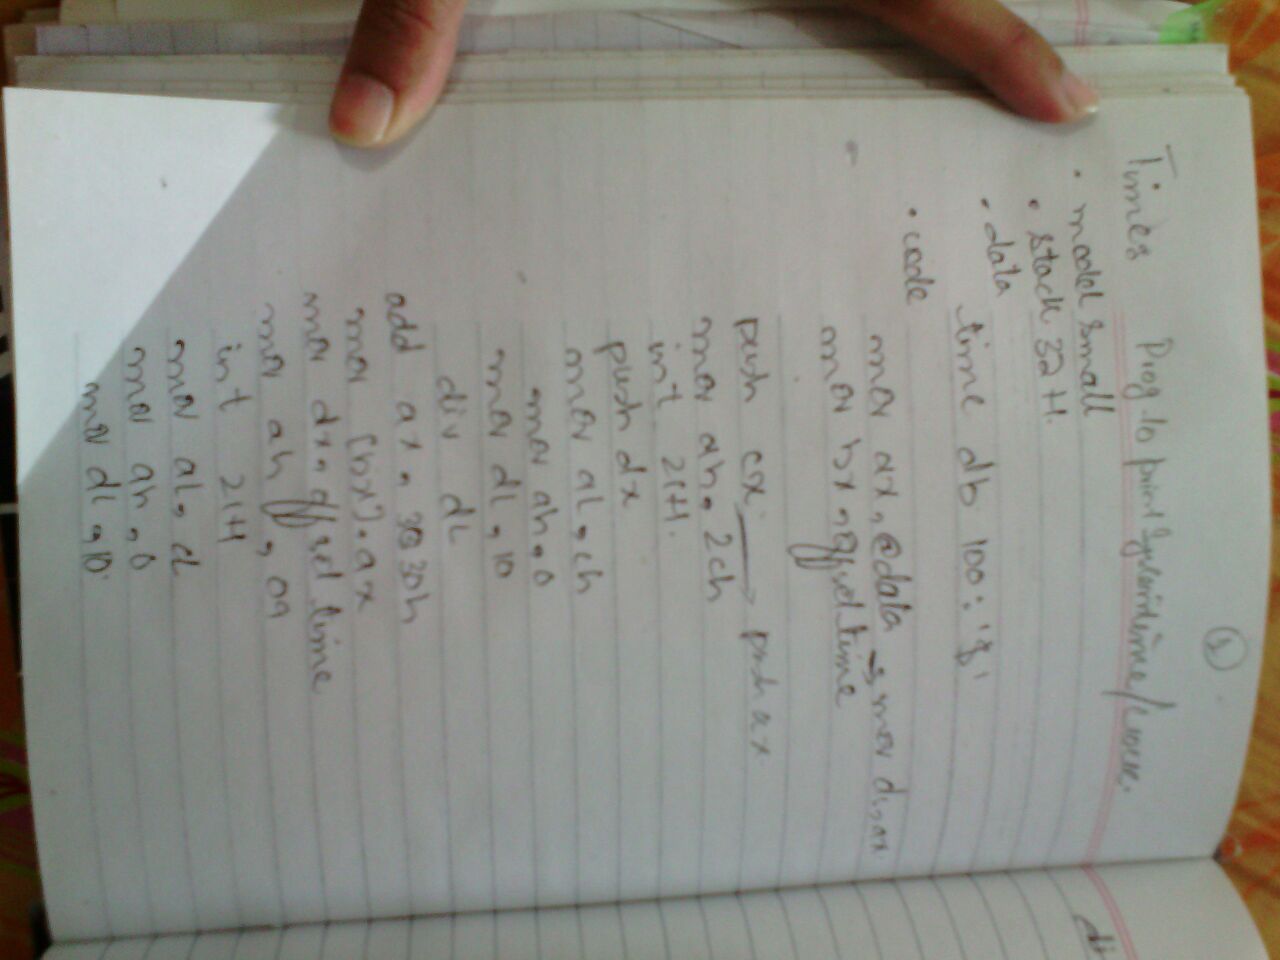 ①
Times Prog. to print System time/
. model small
. stack 32 H.
. data
time db 100 : '$'
. code
mov ax, @data → mov ds, ax
mov bx, offset time
push cx → push ax
mov ah, 2ch
int 21H.
push dx
mov al, ch
mov ah, 0
mov dl, 10
div dl
add ax, 3030h
mov [bx], ax
mov dx, offset time
mov ah, 09
int 21H
mov al, cl
mov ah, 0
mov dl, 10